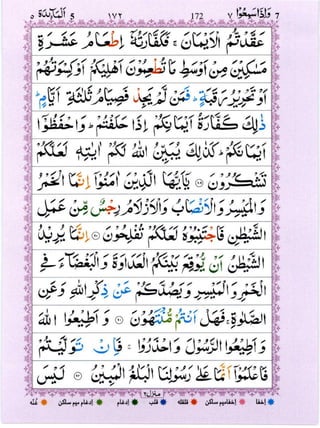 المآئدة ٥ ١٧٢ 172 واذا سمعوا ٧
عَقَّدْتُّمُ الْاَيْمَانَ ۚ فَكَفَّارَتُهٗۤ اِطْعَامُ عَشَرَةِ
مَسٰكِيْنَ مِنْ اَوْسَطِ مَا تُطْعِمُوْنَ اَهْلِيْكُمْ اَوْ كِسْوَتُهُمْ
اَوْ تَحْرِيْرُ رَقَبَةٍ ؕ فَمَنْ لَّمْ يَجِدْ فَصِيَامُ ثَلٰثَةِ اَيَّامٍ ؕ
ذٰلِكَ كَفَّارَةُ اَيْمَانِكُمْ اِذَا حَلَفْتُمْ ؕ وَاحْفَظُوْۤا
اَيْمَانَكُمْ ؕ كَذٰلِكَ يُبَيِّنُ اللّٰهُ لَكُمْ اٰيٰتِهٖ لَعَلَّكُمْ
تَشْكُرُوْنَ ۝ يٰۤاَيُّهَا الَّذِيْنَ اٰمَنُوْۤا اِنَّمَا الْخَمْرُ
وَالْمَيْسِرُ وَالْاَنْصَابُ وَالْاَزْلَامُ رِجْسٌ مِّنْ عَمَلِ
الشَّيْطٰنِ فَاجْتَنِبُوْهُ لَعَلَّكُمْ تُفْلِحُوْنَ ۝ اِنَّمَا يُرِيْدُ
الشَّيْطٰنُ اَنْ يُّوْقِعَ بَيْنَكُمُ الْعَدَاوَةَ وَالْبَغْضَآءَ فِي
الْخَمْرِ وَالْمَيْسِرِ وَيَصُدَّكُمْ عَنْ ذِكْرِ اللّٰهِ وَعَنِ
الصَّلٰوةِ ۚ فَهَلْ اَنْتُمْ مُّنْتَهُوْنَ ۝ وَاَطِيْعُوا اللّٰهَ
وَاَطِيْعُوا الرَّسُوْلَ وَاحْذَرُوْا ۚ فَاِنْ تَوَلَّيْتُمْ
فَاعْلَمُوْۤا اَنَّمَا عَلٰى رَسُوْلِنَا الْبَلٰغُ الْمُبِيْنُ ۝ لَيْسَ
منزل ٢
اخفا اخفا میم ساکن قلقلہ قلب ادغام ادغام میم ساکن غنہ